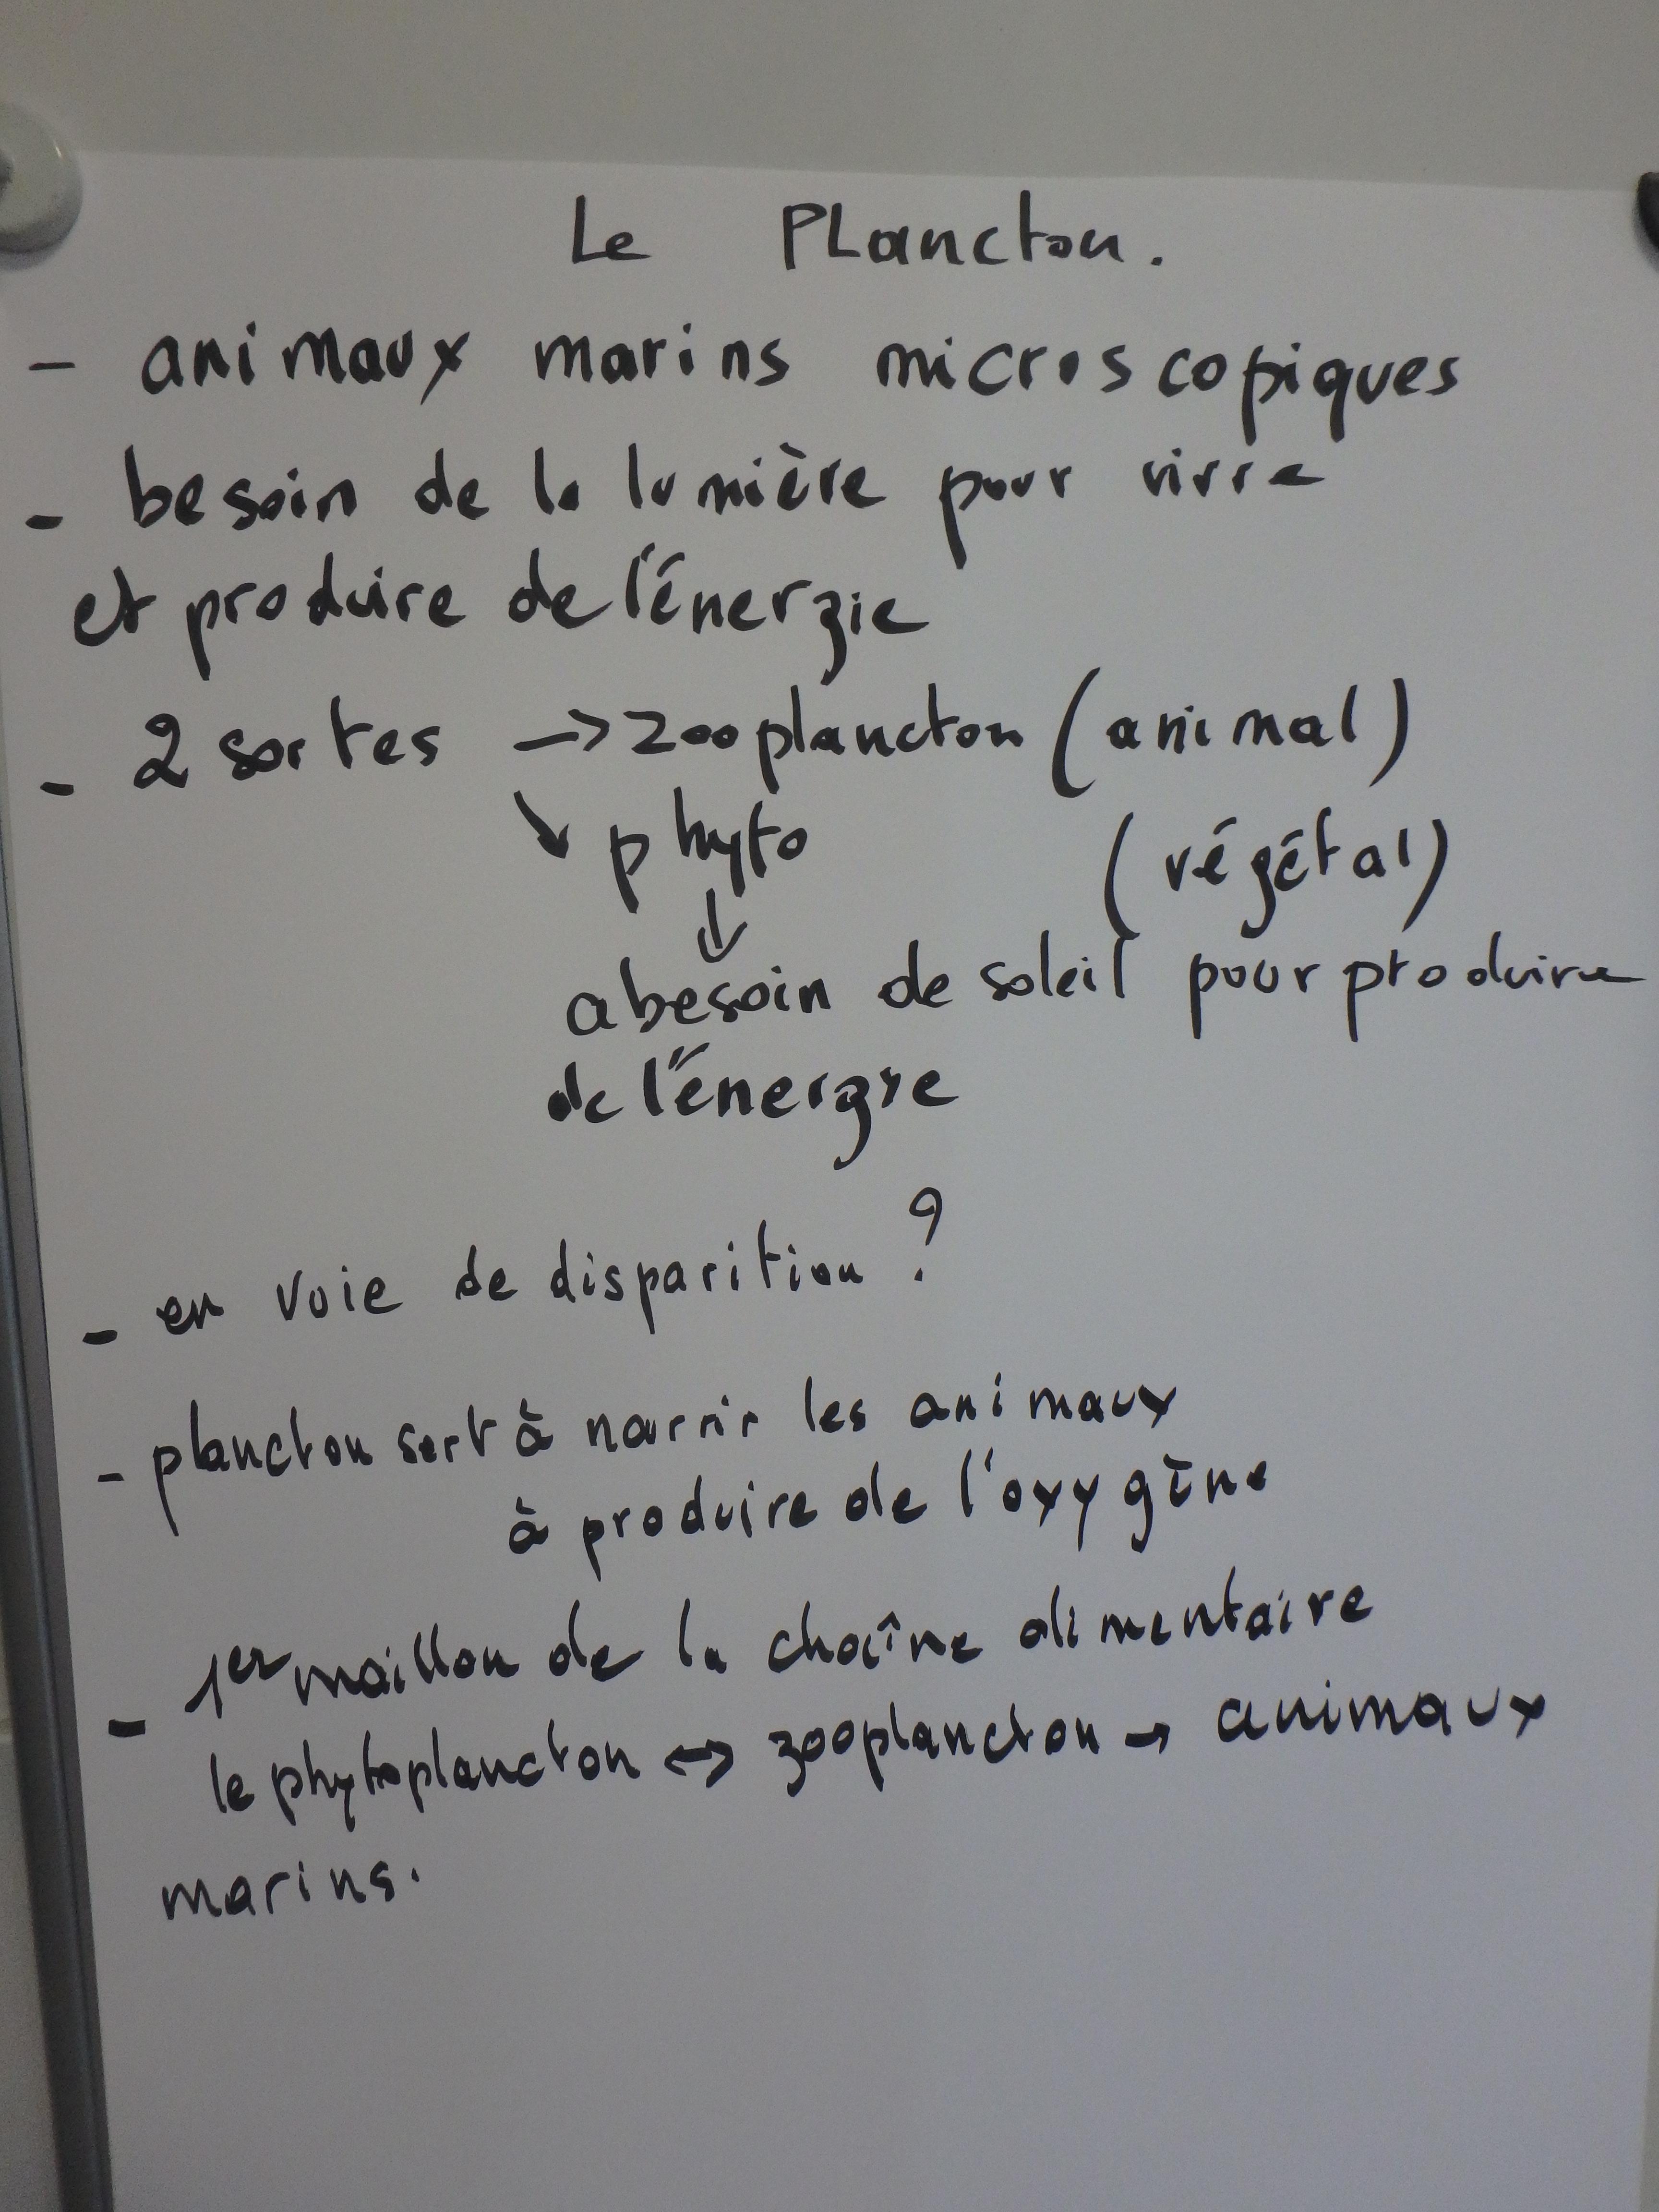 Le PLancton.
- animaux marins microscopiques
- besoin de la lumière pour vivre
et produire de l'énergie
- 2 sortes -> zooplancton (animal)
↘ phyto (végétal)
↓
a besoin de soleil pour produire
de l'énergie
- en voie de disparition ?
- plancton sert à nourrir les animaux
à produire de l'oxygène
- 1er maillon de la chaîne alimentaire
le phytoplancton <-> zooplancton -> animaux
marins.